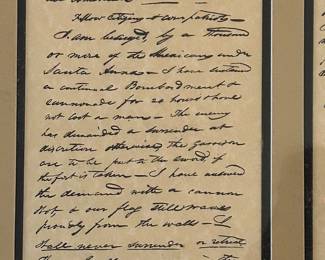 Fellow Citizens & compatriots —
I am besieged, by a thousand
or more of the Mexicans under
Santa Anna — I have sustained
a continual Bombardment &
cannonade for 24 hours & have
not lost a man — The enemy
has demanded a surrender at
discretion otherwise, the garrison
are to be put to the sword, if
the fort is taken — I have answered
the demand with a cannon
shot, & our flag still waves
proudly from the walls — I
shall never surrender or retreat